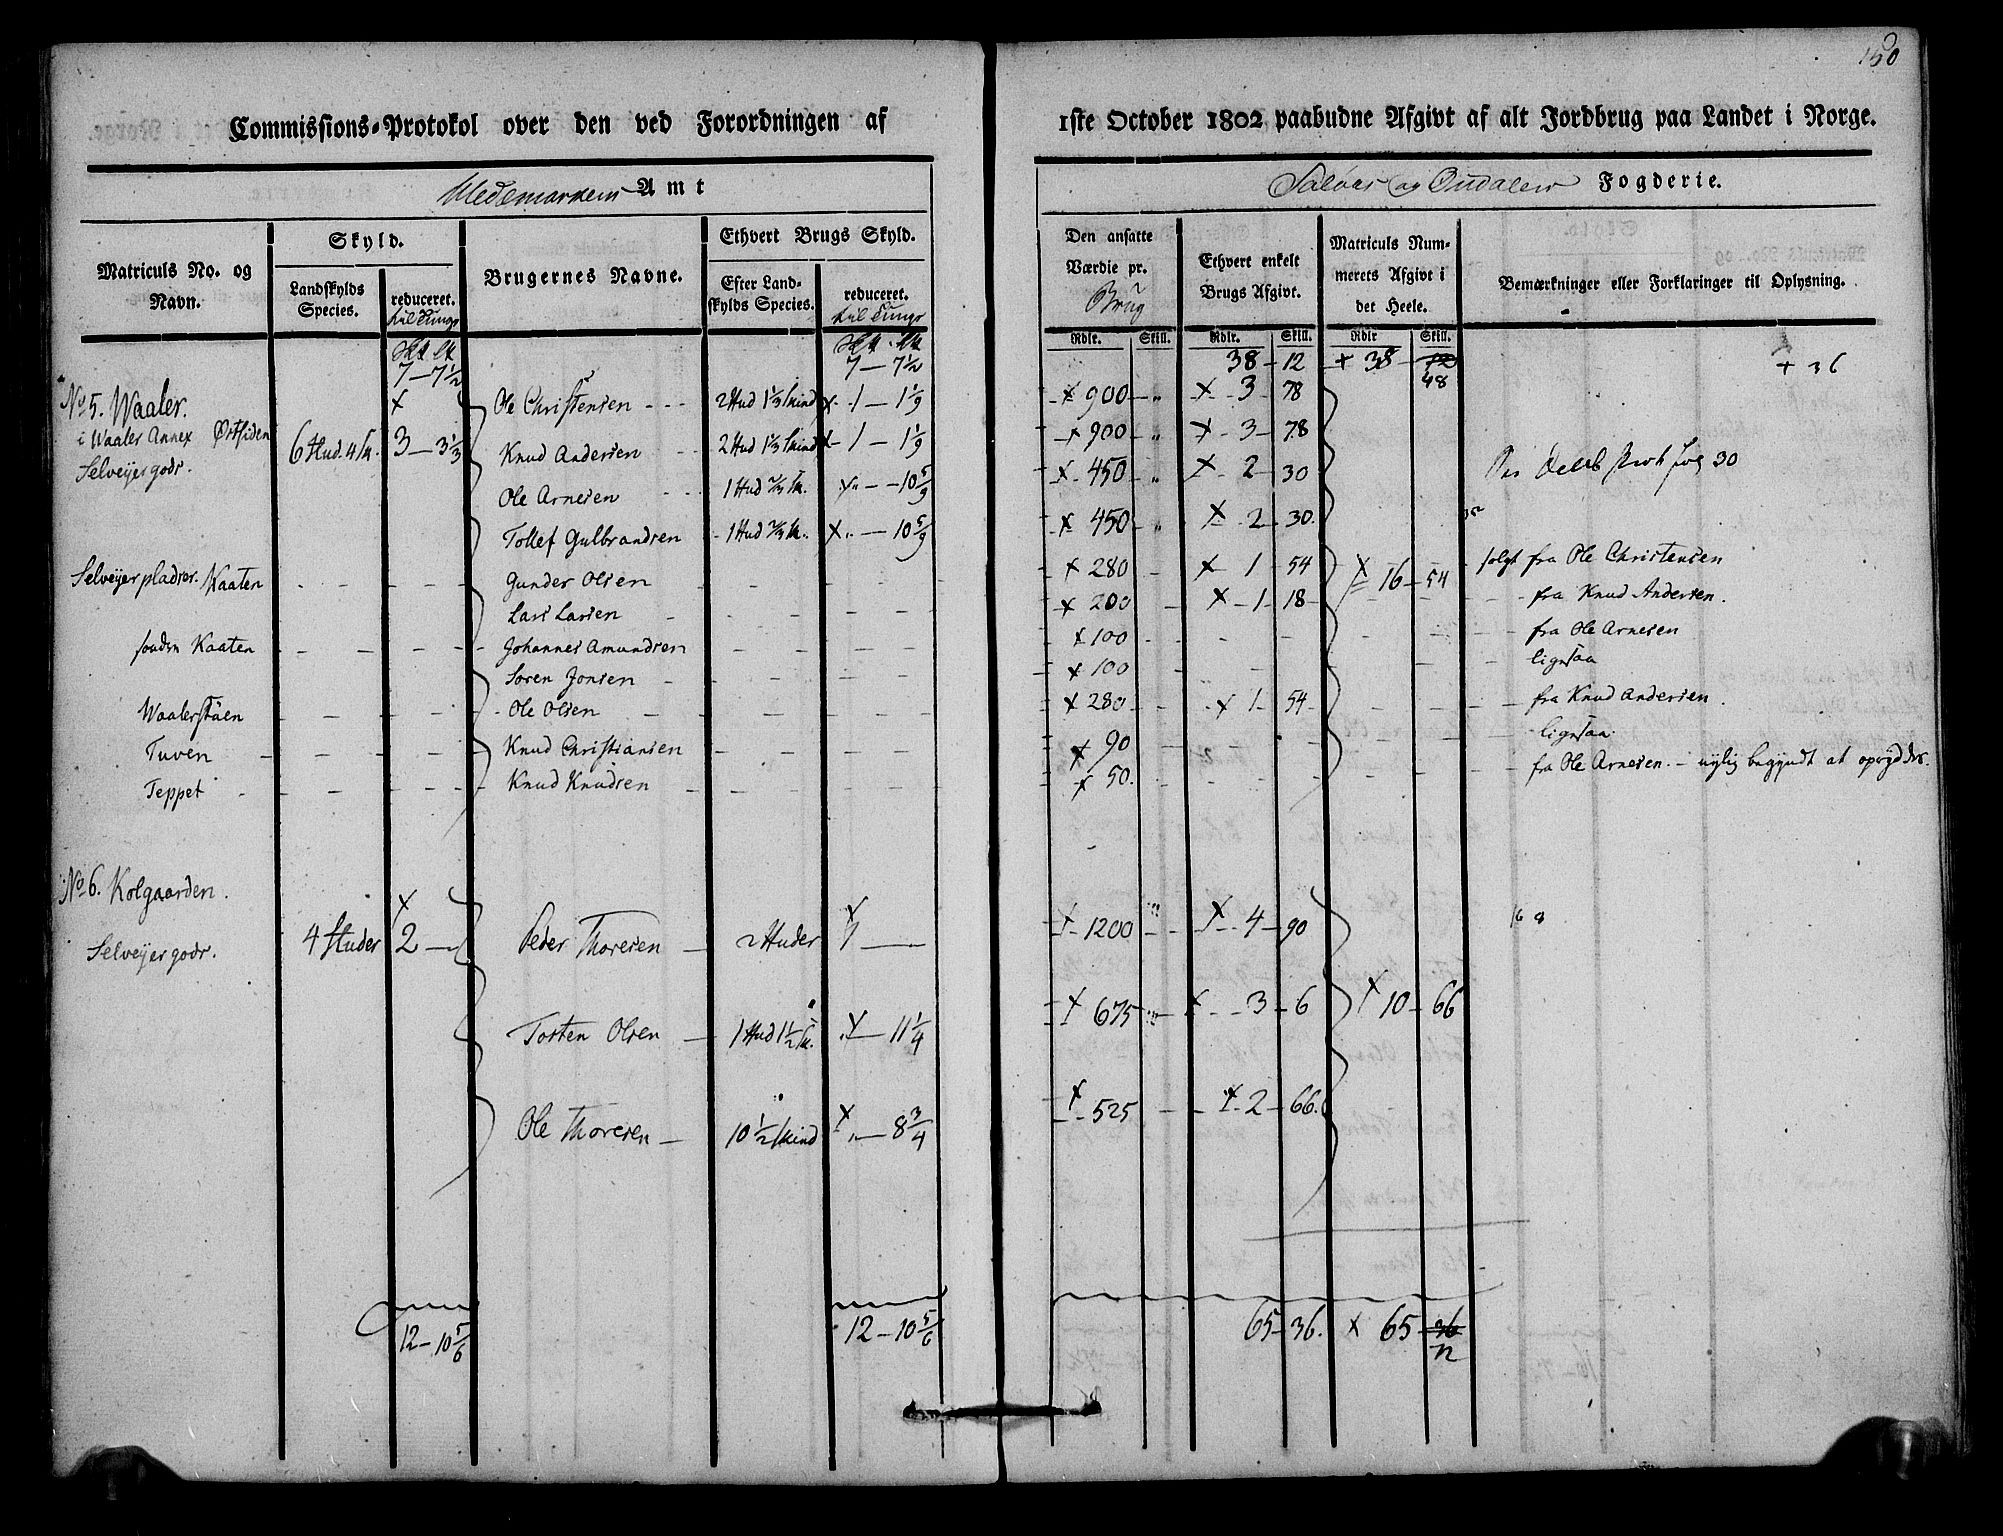 150
Commissions-Protokol over den ved Forordningen af 1ste October 1802 paabudne Afgivt af alt Jordbrug paa Landet i Norge.
Hedemarkens Amt
Soløer og Oudalens Fogderie.
Matriculs No. og Navn.
Skyld.
Landskylds Species.
reduceret. til Tunge
Brugernes Navne.
Ethvert Brugs Skyld.
Efter Landskylds Species.
reduceret. til Tunge
Den ansatte Værdie pr. Brug
Ethvert enkelt Brugs Afgivt.
Matriculs Nummerets Afgivt i det Heele.
Bemærkninger eller Forklaringer til Oplysning.
Rdlr. Skill. Rdlr. Skill. Rdlr Skill.
7 – 7 1/2 7 – 7 1/2 38 – 12 + 38 – 12 48 + 36
No 5. Waaler. x Ole Christensen 2 Hud 1 1/3 skind x 1 – 1 1/9 x 900 " x 3 – 78
i Waaler Annex Østsiden 6 Hud. 4 sk. 3 – 3 1/3 Knud Andersen 2 Hud 1 1/3 skind x 1 – 1 1/9 x 900 " x 3 – 78
Selveyergods. Ole Arnesen 1 Hud 2/3 sk. x " – 10 5/9 x 450 " x 2 – 30 fol 30
Tollef Gulbrandsen 1 Hud 2/3 sk. x " – 10 5/9 x 450 " x 2 – 30
Selveyerpladser. Kaaten Gunder Olsen x 280 x 1 – 54 x 16 – 54 solgt fra Ole Christensen
Lars Larsen x 200 x 1 – 18 fra Knud Andersen.
søndre Kaaten Johannes Amundsen x 100 fra Ole Arnesen
Soren Jonsen x 100 ligesaa
Waalerstüen Ole Olsen x 280 x 1 – 54 fra Knud Andersen.
Tuven Knud Christiansen x 90 ligesaa
Teppet Knud Knudsen x 50. fra Ole Arnesen. – nylig begyndt at opryddes.
No 6. Kolgaarden.
Selveyergods. 4 Huder x 2 – Peder Thoresen 2 Huder x 1 – x 1200 x 4 – 90 16 8
Torsten Olsen 1 Hud 1 1/2 sk. x – 11 1/4 x 675 x 3 – 6 x 10 – 66
Ole Thoresen 10 1/2 skind x " – 8 3/4 x 525 x 2 – 66.
12 – 10 5/6 12 – 10 5/6 65 – 36. x 65 – 36 72